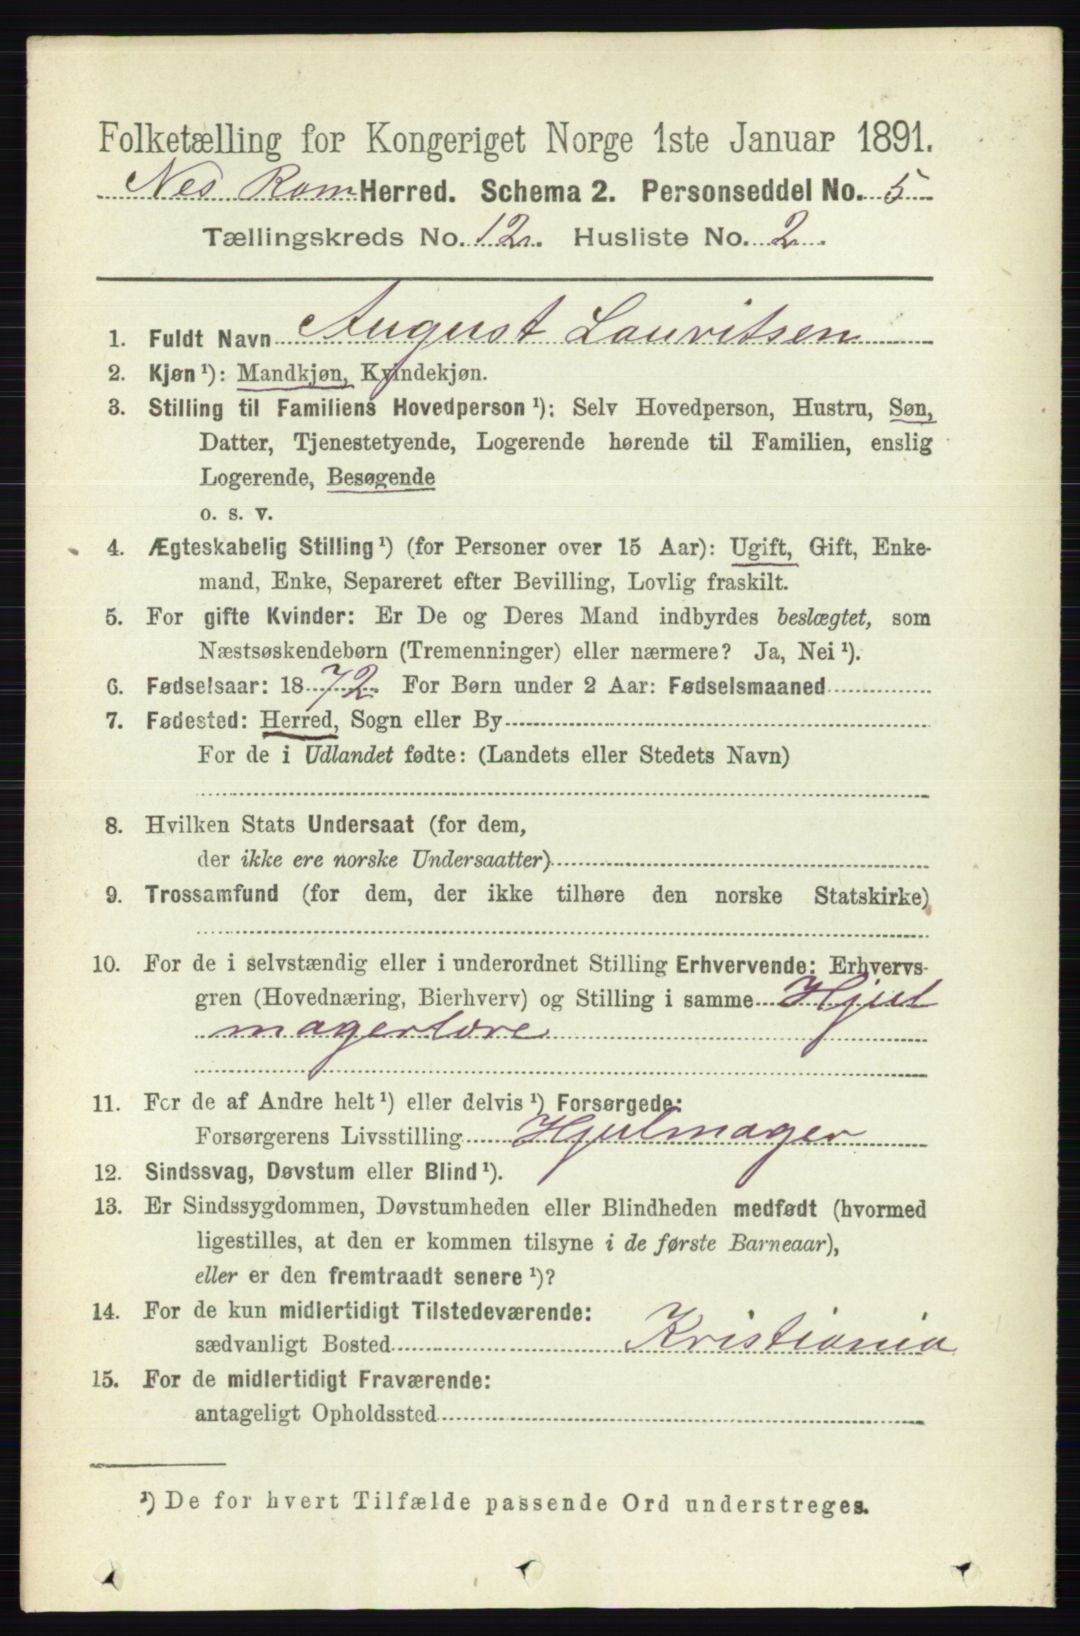 Folketælling for Kongeriget Norge 1ste Januar 1891.
Nes Rom Herred. Schema 2. Personseddel No. 5
Tællingskreds No. 12. Husliste No. 2.
1. Fuldt Navn August Lauritsen
2. Kjøn ¹): Mandkjøn, Kvindekjøn.
3. Stilling til Familiens Hovedperson ¹): Selv Hovedperson, Hustru, Søn,
Datter, Tjenestetyende, Logerende hørende til Familien, enslig
Logerende, Besøgende
o. s. v.
4. Ægteskabelig Stilling ¹) (for Personer over 15 Aar): Ugift, Gift, Enke-
mand, Enke, Separeret efter Bevilling, Lovlig fraskilt.
5. For gifte Kvinder: Er De og Deres Mand indbyrdes beslægtet, som
Næstsøskendebørn (Tremenninger) eller nærmere? Ja, Nei ¹).
6. Fødselsaar: 1872. For Børn under 2 Aar: Fødselsmaaned
7. Fødested: Herred, Sogn eller By
For de i Udlandet fødte: (Landets eller Stedets Navn)
8. Hvilken Stats Undersaat (for dem,
der ikke ere norske Undersaatter)
9. Trossamfund (for dem, der ikke tilhøre den norske Statskirke)
10. For de i selvstændig eller i underordnet Stilling Erhvervende: Erhvervs-
gren (Hovednæring, Bierhverv) og Stilling i samme Hjul
magerlære
11. For de af Andre helt ¹) eller delvis ¹) Forsørgede:
Forsørgerens Livsstilling Hjulmager
12. Sindssvag, Døvstum eller Blind ¹).
13. Er Sindssygdommen, Døvstumheden eller Blindheden medfødt (hvormed
ligestilles, at den er kommen tilsyne i de første Barneaar),
eller er den fremtraadt senere ¹)?
14. For de kun midlertidigt Tilstedeværende:
sædvanligt Bosted Kristiania
15. For de midlertidigt Fraværende:
antageligt Opholdssted
¹) De for hvert Tilfælde passende Ord understreges.